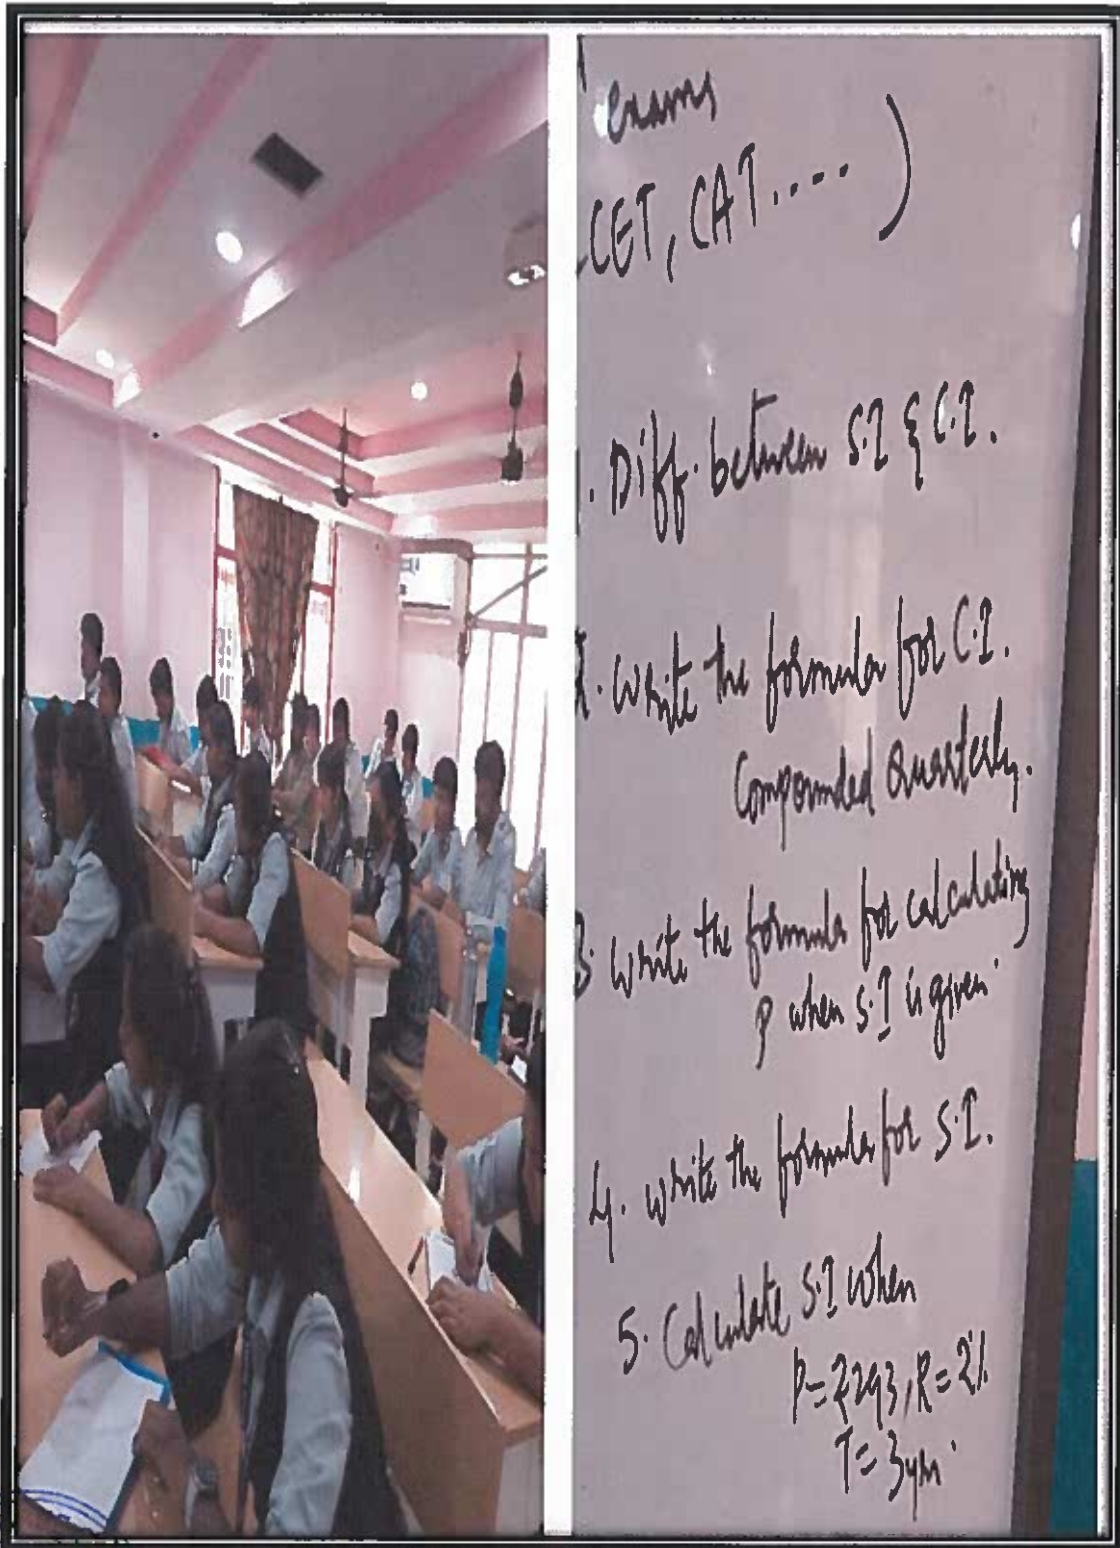 exams
CET, CAT.... )
. Diff. between S.I & C.I.
. Write the formula for C.I.
Compounded Quarterly.
3. Write the formula for calculating
P when S.I is given
4. Write the formula for S.I.
5. Calculate S.I when
R = 2%
T = 3yrs